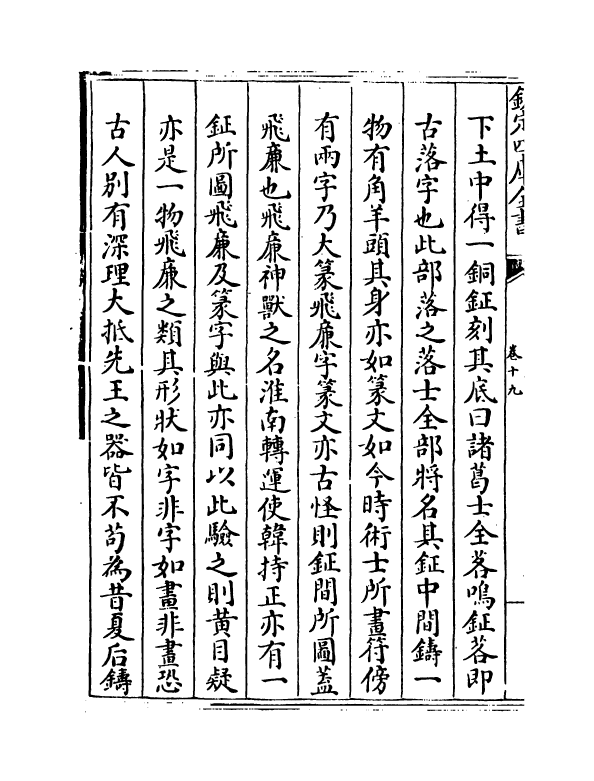 欽定四庫全書
卷十九
下土中得一銅鉦刻其底曰諸葛士全茖鳴鉦茖即
古落字也此部落之落士全部將名其鉦中間鑄一
物有角羊頭其身亦如篆文如今時術士所畫符傍
有兩字乃大篆飛廉字篆文亦古怪則鉦間所圖盖
飛廉也飛廉神獸之名淮南轉運使韓持正亦有一
鉦所圖飛廉及篆字與此亦同以此驗之則黄目疑
亦是一物飛廉之類其形狀如字非字如畫非畫恐
古人别有深理大抵先王之器皆不苟為昔夏后鑄